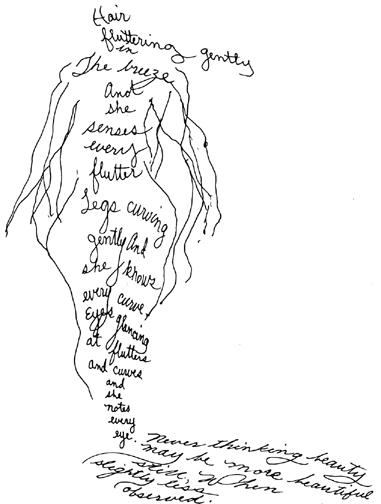 Hair
fluttering gently
in
The breeze
And
she
senses
every
flutter
Legs curving
gently And
she knows
every curve
Eyes glancing
at flutters
and curves
and
she
notes
every
eye.
Never thinking beauty
may be more beautiful
still, When
slightly less
observed.